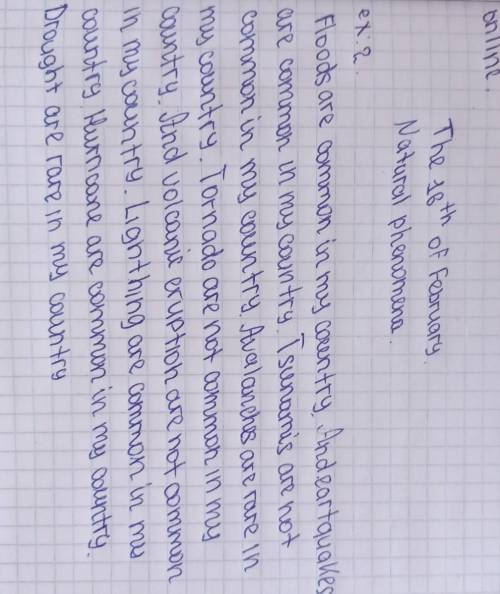 online.
The 18th of February.
Natural phenomena.
ex: 2.
Floods are common in my country. And eartquakes
are common in my country. Tsunamis are not
common in my country. Avalanches are rare in
my country. Tornado are not common in my
country. And volcanic eryption are not common
in my country. Lightning are common in my
country. Hurricane are common in my country.
Drought are rare in my country